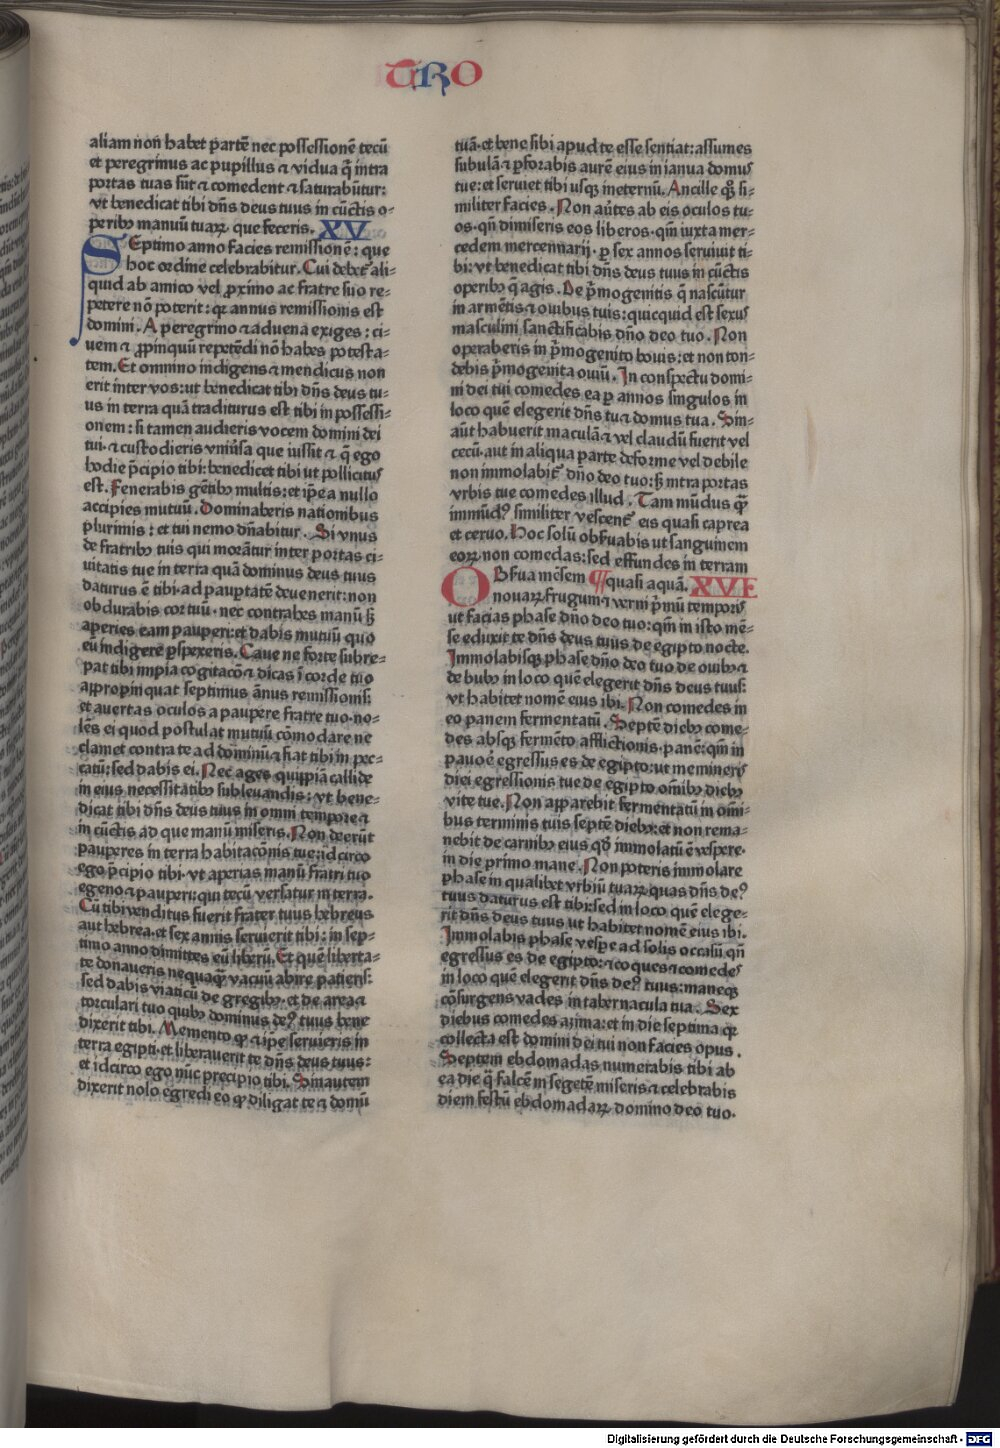 TRO
aliam non habet partē nec possessionē tecū
et peregrinus ac pupillus ⁊ vidua q̄ intra
portas tuas sūt ⁊ comedent ⁊ saturabūtur:
vt benedicat tibi dn̄s deus tuus in cūctis o⸗
peribꝫ manuū tuaꝝ que feceris. XV
SEptimo anno facies remissionē: que
hoc ordine celebrabitur. Cui debet᷒ ali⸗
quid ab amico vel ꝓximo ac fratre suo re⸗
petere nō poterit: qꝛ annus remissionis est
domini. A peregrino ⁊ aduena exiges: ci⸗
uem ⁊ ꝓpinquū repetēdi nō habes potesta⸗
tem. Et omnino indigens ⁊ mendicus non
erit inter vos: ut benedicat tibi dn̄s deus tu⸗
us in terra quā traditurus est tibi in possessi⸗
onem: si tamen audieris vocem domini dei
tui· ⁊ custodieris vniūsa que iussit ⁊ q̄ ego
hodie p̄cipio tibi: benedicet tibi ut pollicitus
est. Fenerabis gētibꝫ multis: et ip̄e a nullo
accipies mutuū. Dominaberis nationibus
plurimis: et tui nemo dn̄abitur. Si vnus
de fratribꝫ tuis qui morātur inter portas ci⸗
uitatis tue in terra quā dominus deus tuus
daturus ē tibi· ad paup̄tatē deuenerit: non
obdurabis cor tuū· nec contrahes manū sꝫ
aperies eam pauperi: et dabis mutuū quo
eū indigere ꝑspexeris. Caue ne forte subre⸗
pat tibi impia cogitacō ⁊ dicas ī corde tuo
appropinquat septimus ānus remissionis:
et auertas oculos a paupere fratre tuo· no⸗
lēs ei quod postulat mutuū cōmodare ne
clamet contra te ad dominū ⁊ fiat tibi in pec⸗
catū: sed dabis ei. Nec ages quippiā callide
in eius necessitatibꝫ subleuandis: vt bene⸗
dicat tibi dn̄s deus tuus in omni tempore ⁊
in cūctis ad que manū miseris. Non deerūt
pauperes in terra habitacōnis tue: idcirco
ego p̄cipio tibi· vt aperias manū fratri tuo
egeno ⁊ pauperi: qui tecū versatur in terra.
Cū tibi venditus fuerit frater tuus hebreus
aut hebrea· et sex annis seruierit tibi: in sep⸗
timo anno dimittes eū liberū. Et quē liberta⸗
te donaueris nequaq̄ vacuū abire patieris:
sed dabis viaticū de gregibꝫ· et de area ⁊
torculari tuo quibꝫ dominus deꝰ tuus bene
dixerit tibi. Memento qꝛ ⁊ ipe seruieris in
terra egipti· et liberauerit te dn̄s deus tuus:
et idcirco ego nūc precipio tibi. Sinautem
dixerit nolo egredi eo qꝛ diligat te ⁊ domū
tuā· et bene sibi apud te esse sentiat: assumes
subulā ⁊ ꝑforabis aurē eius in ianua domus
tue: et seruiet tibi usqꝫ in eternū. Ancille qꝫ si⸗
militer facies. Non aūtes ab eis oculos tu⸗
os· qn̄ dimiseris eos liberos· qm̄ iuxta mer⸗
cedem mercennarij· ꝑ sex annos seruiuit ti⸗
bi: vt benedicat tibi dn̄s deus tuus in cūctis
operibꝫ q̄ agis. De p̄mogenitis q̄ nascūtur
in armētis ⁊ ouibus tuis: quicquid est sexus
masculini sanctificabis dn̄o deo tuo. Non
operaberis in p̄mogenito bouis: et non ton⸗
debis p̄mogenita ouiū. In conspectu domi⸗
ni dei tui comedes ea ꝑ annos singulos in
loco quē elegerit dn̄s tu ⁊ domus tua. Sin⸗
aūt habuerit maculā ⁊ vel claudū fuerit vel
cecū· aut in aliqua parte deforme vel debile
non immolabit᷒ dn̄o deo tuo: sꝫ intra portas
vrbis tue comedes illud. Tam mūdus q̄
immūdꝰ similiter vescent᷒ eis quasi caprea
et ceruo. Hoc solū obseruabis ut sanguinem
eoꝝ non comedas: sed effundes in terram
OBserua mēsem ¶quasi aquā. XVI
nouaꝝ frugum ⁊ verni p̄mū temporis
ut facias phase dn̄o deo tuo: qm̄ in isto mē⸗
se eduxit te dn̄s deus tuus de egipto nocte.
Immolabisqꝫ phase dn̄o deo tuo de ouibꝫ ⁊
de bubꝫ in loco quē elegerit dn̄s deus tuus:
vt habitet nomē eius ibi. Non comedes in
eo panem fermentatū. Septē diebꝫ come⸗
des absqꝫ fermēto afflictionis· panē: qm̄ in
pauoē egressus es de egipto: ut memineris
diei egressionis tue de egipto om̄ibꝫ diebꝫ
vite tue. Non apparebit fermentatū in om̄i⸗
bus terminis tuis septē diebꝫ: et non rema⸗
nebit de carnibꝫ eius qd̄ immolatū ē vespere·
in die primo mane. Non poteris immolare
phase in qualibet vrbiū tuaꝝ quas dn̄s deꝰ
tuus daturus est tibi: sed in loco quē elege⸗
rit dn̄s deus tuus ut habitet nomē eius ibi.
Immolabis phase vespe ad solis occasū qn̄
egressus es de egipto: ⁊ coques ⁊ comedes
in loco quē elegerit dn̄s deꝰ tuus: maneqꝫ
cōsurgens vades in tabernacula tua. Sex
diebus comedes azima: et in die septima qꝛ
collecta est domini dei tui non facies opus.
Septem ebdomadas numerabis tibi ab
ea die q̄ falcē in segetē miseris ⁊ celebrabis
diem festū ebdomadaꝝ domino deo tuo·
Digitalisierung gefördert durch die Deutsche Forschungsgemeinschaft - DFG